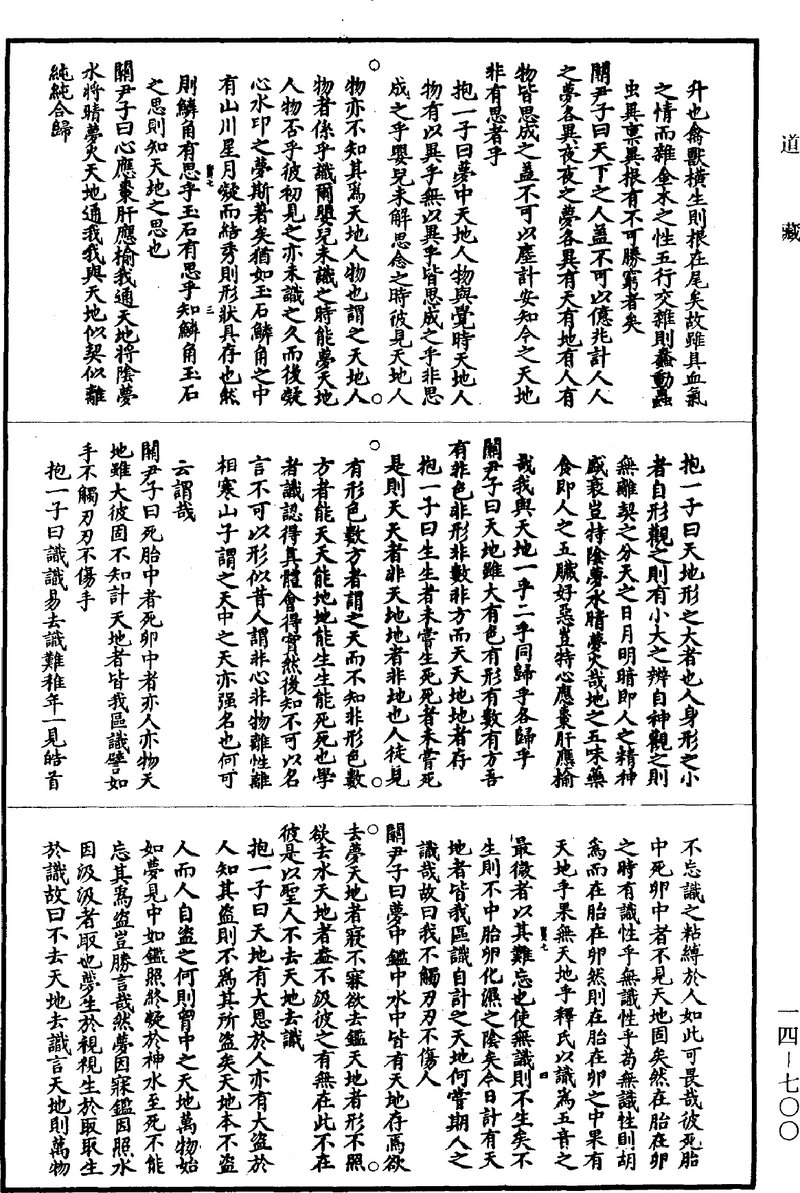 道藏
升也禽獸橫生則根在尾矣故雖具血氣
之情而雜金木之性五行交雜則蠢動蟲
虫異稟異根有不可勝窮者矣
關尹子曰天下之人蓋不可以億兆計人人
之夢各異夜夜之夢各異有天有地有人有
物皆思成之蓋不可以塵計安知今之天地
非有思者乎
抱一子曰夢中天地人物與覺時天地人
物有以異乎無以異乎皆思成之乎非思
成之乎嬰兒未解思念之時彼見天地人
物亦不知其為天地人物也謂之天地人
物者係乎識爾嬰兒未識之時能夢天地
人物否乎彼初見之亦未識之久而後凝
心水印之夢斯著矣猶如玉石鱗角之中
有山川星月凝而結秀則形狀具存也然
則鱗角有思乎玉石有思乎知鱗角玉石
之思則知天地之思也
關尹子曰心應棗肝應榆我通天地將陰夢
水將晴夢火天地通我我與天地似契似離
純純合歸
抱一子曰天地形之大者也人身形之小
者自形觀之則有小大之辨自神觀之則
無離契之分天之日月明暗即人之精神
盛衰豈特陰夢水晴夢火哉地之五味藥
食即人之五臟好惡豈特心應棗肝應榆
哉我與天地一乎二乎同歸乎各歸乎
關尹子曰天地雖大有色有形有數有方吾
有非色非形非數非方而天天地地者存
抱一子曰生生者未嘗生死死者未嘗死
是則天天者非天地地者非地也人徒見
有形色數方者謂之天而不知非形色數
方者能天天能地地能生生能死死也學
者識認得真體會得實然後知不可以名
言不可以形似昔人謂非心非物離性離
相寒山子謂之天中之天亦强名也何可
云謂哉
關尹子曰死胎中者死卵中者亦人亦物天
地雖大彼固不知計天地者皆我區識譬如
手不觸刃刃不傷手
抱一子曰識識易去識難稚年一見皓首
不忘識之粘縛於人如此可畏哉彼死胎
中死卵中者不見天地固矣然在胎在卵
之時有識性乎無識性乎苟無識性則胡
為而在胎在卵然則在胎在卵之中果有
天地乎果無天地乎釋氏以識為五音之
最微者以其難忘也使無識則不生矣不
生則不中胎卵化濕之陰矣今日計有天
地者皆我區識自計之天地何嘗期人之
識哉故曰我不觸刃刃不傷人
關尹子曰夢中鑑中水中皆有天地存焉欲
去夢天地者寢不寐欲去鑑天地者形不照
欲去水天地者盎不汲彼之有無在此不在
彼是以聖人不去天地去識
抱一子曰天地有大恩於人亦有大盜於
人知其盜則不為其所盜矣天地本不盜
人而人自盜之何則胷中之天地萬物始
如夢見中如鑑照終凝於神水至死不能
忘其為盜豈勝言哉然夢因寐鑑因照水
因汲汲者取也夢生於視視生於取取生
於識故曰不去天地去識言天地則萬物
一四—七〇〇